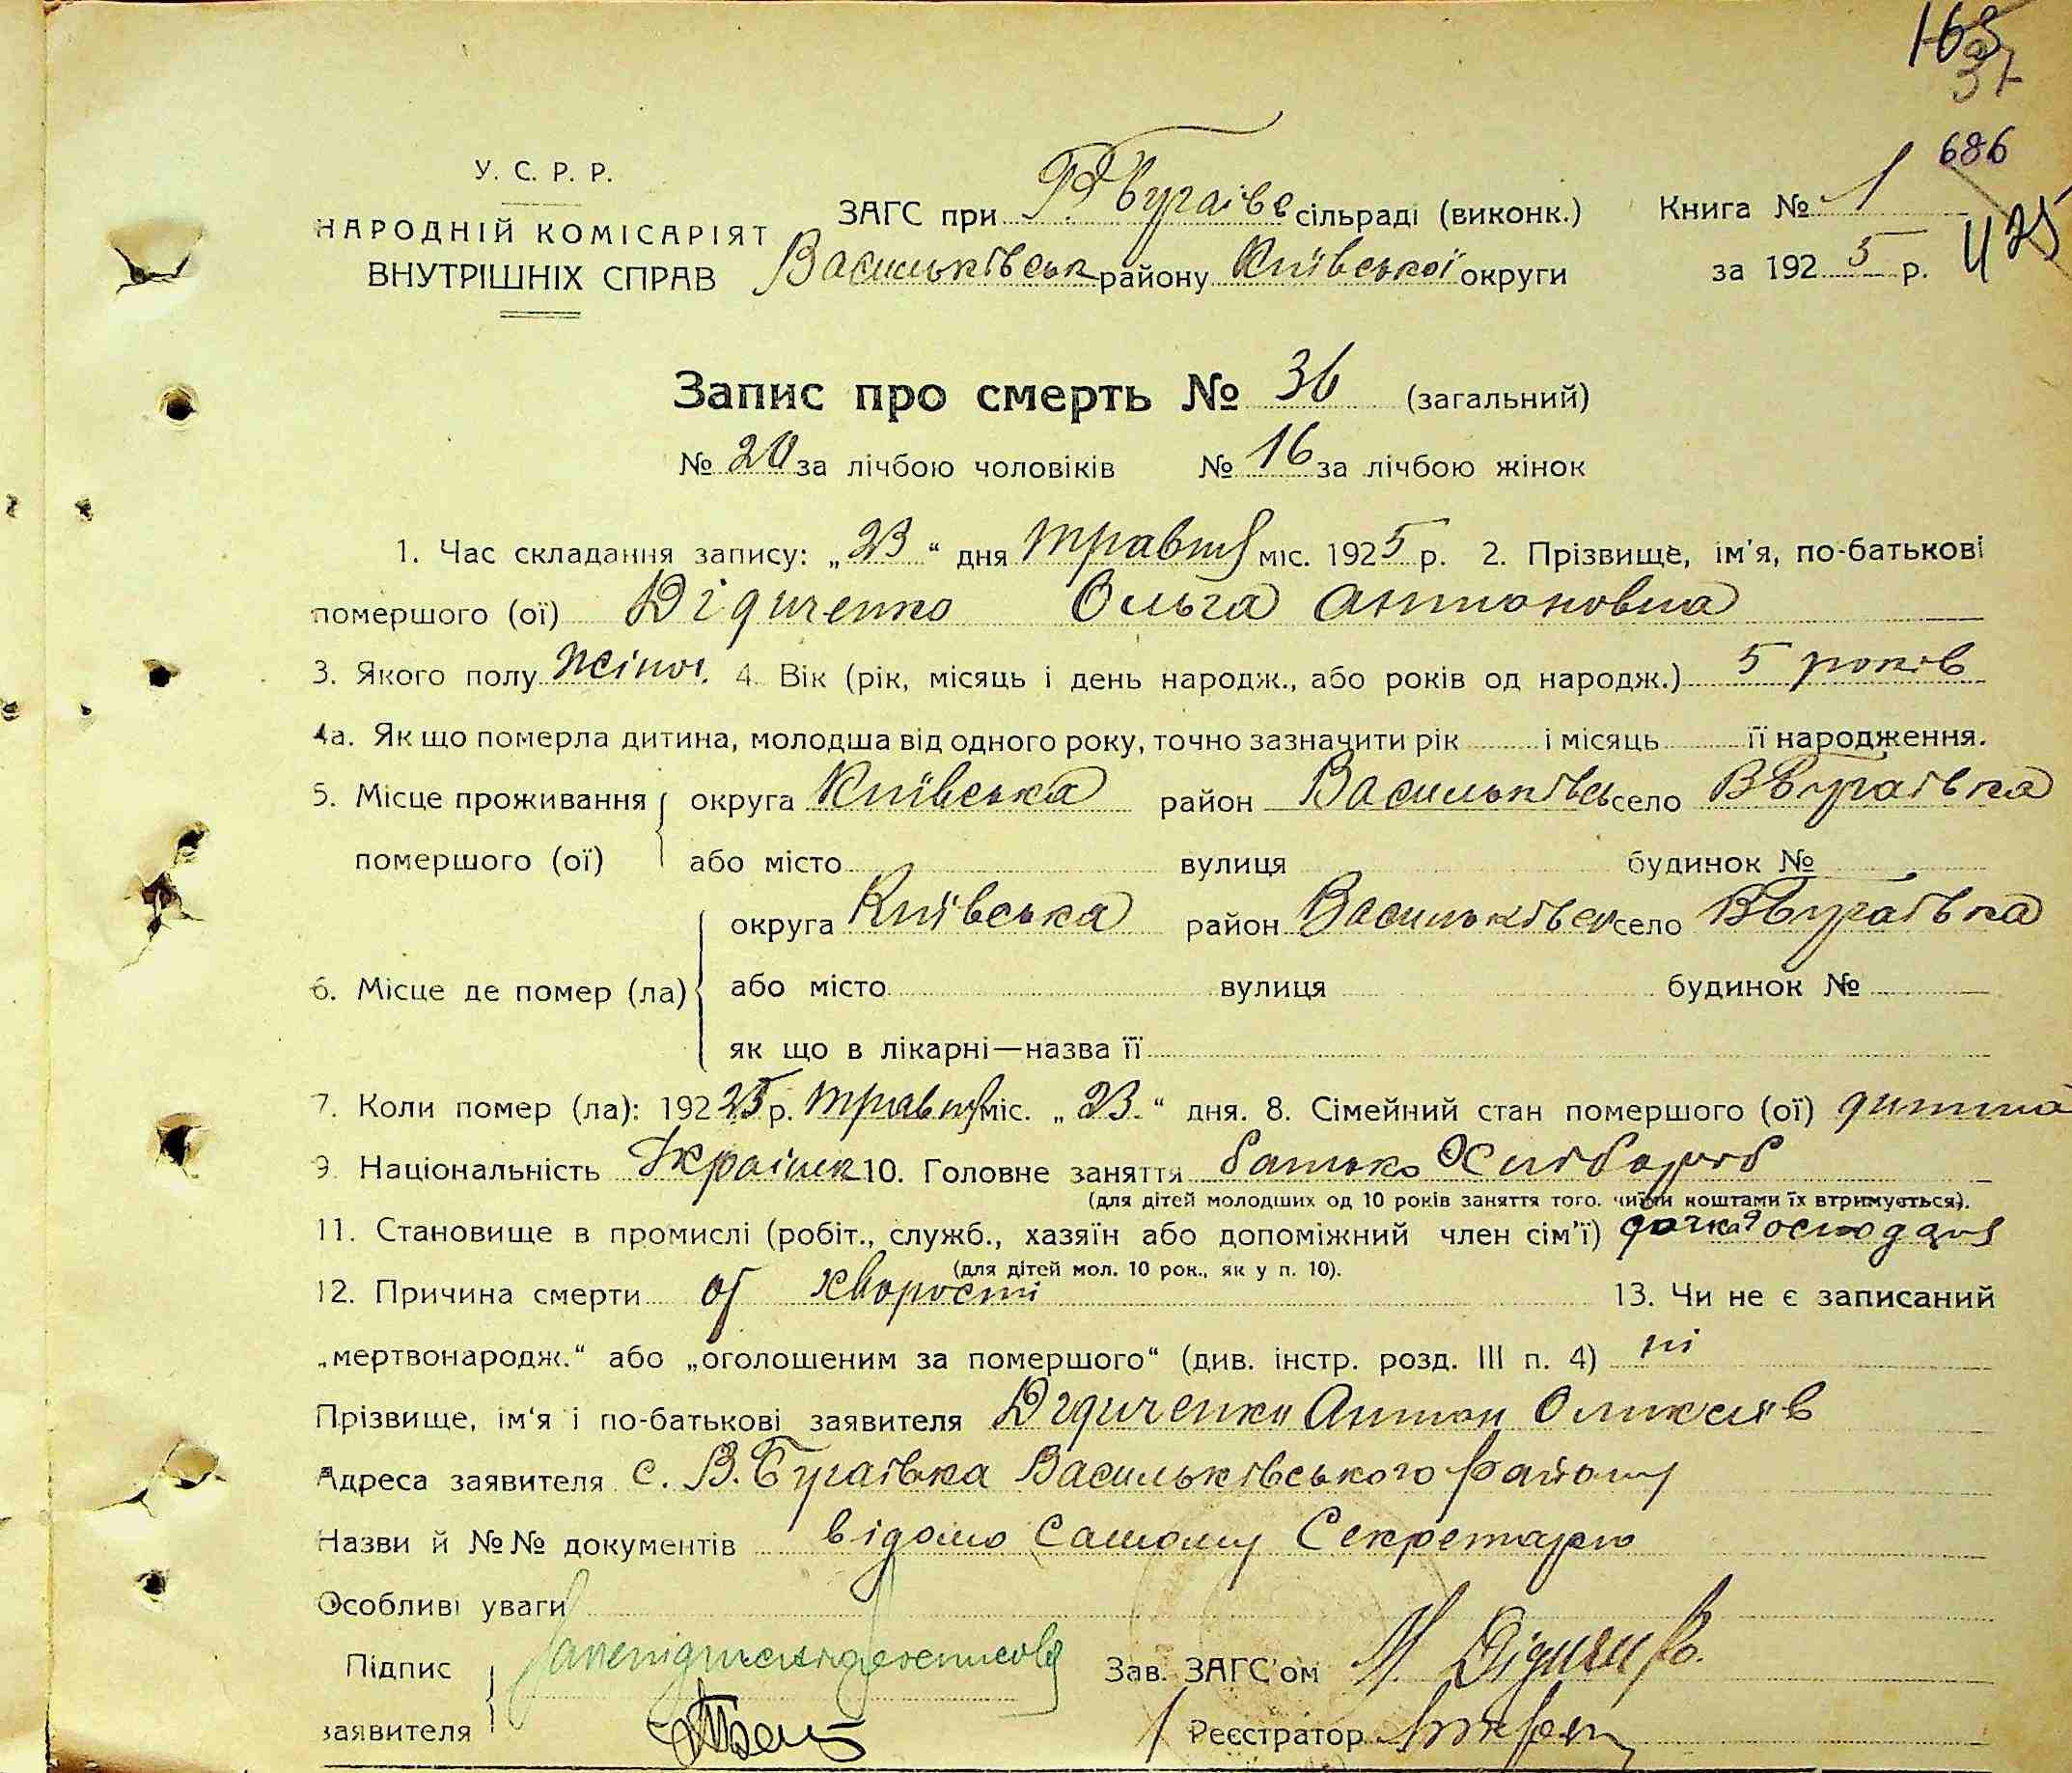 168
37
686
У. С. Р. Р.
НАРОДНІЙ КОМІСАРІЯТ
ВНУТРІШНІХ СПРАВ
ЗАГС при Бугаівс сільраді (виконк.)
Васильківськ району Київської округи
Книга № 1
за 192 5 р.
Запис про смерть № 36 (загальний)
№ 20 за лічбою чоловіків № 16 за лічбою жінок
1. Час складання запису: „23“ дня травня міс. 1925 р. 2. Прізвище, ім'я, по-батькові
помершого (ої) Дідиченко Ольга Антоновна
3. Якого полу жіноч. 4. Вік (рік, місяць і день народж., або років од народж.) 5 років
4а. Як що померла дитина, молодша від одного року, точно зазначити рік і місяць її народження.
5. Місце проживання помершого (ої) округа Київська район Васильківсь село ВБугаівка
або місто вулиця будинок №
6. Місце де помер (ла) округа Київська район Васильківськ село ВБугаівка
або місто вулиця будинок №
як що в лікарні—назва її
7. Коли помер (ла): 192 25 р. травня міс. „23.“ дня. 8. Сімейний стан помершого (ої) дитина
9. Національність Украінка 10. Головне заняття батько Хлібороб
(для дітей молодших од 10 років заняття того, чиїми коштами їх втримується).
11. Становище в промислі (робіт., служб., хазяїн або допоміжний член сім'ї) дочка господаря
(для дітей мол. 10 рок., як у п. 10).
12. Причина смерти от хворости 13. Чи не є записаний
„мертвонародж.“ або „оголошеним за помершого“ (див. інстр. розд. III п. 4) ні
Прізвище, ім'я і по-батькові заявителя Дідиченко Антон Олексіїв
Адреса заявителя с. В. Бугаівка Васильківського району
Назви й №№ документів відомо самому Секретарю
Особливі уваги
Підпис заявителя
Зав. ЗАГС'ом М.
Реєстратор